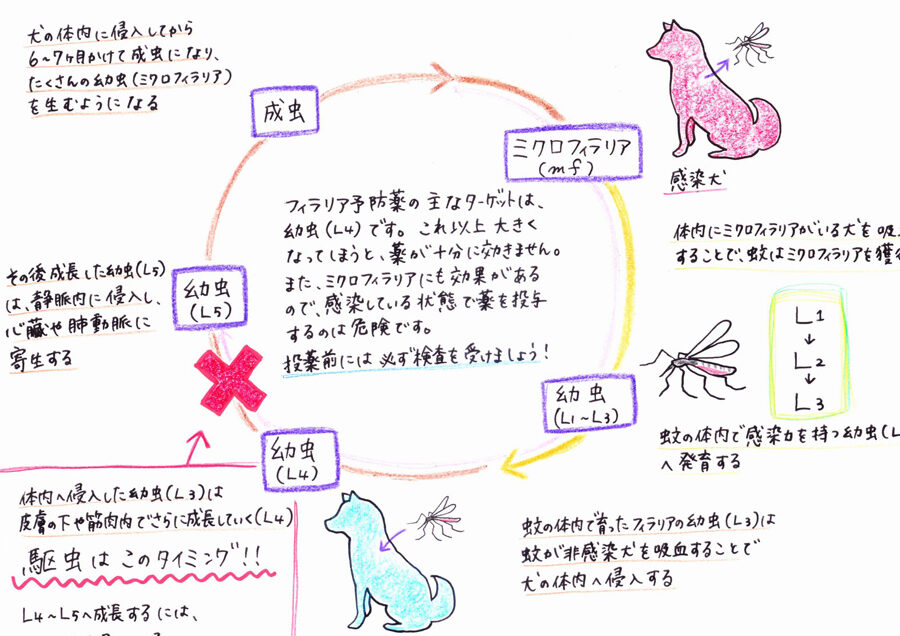 犬の体内に侵入してから
6~7ヶ月かけて成虫になり、
たくさんの幼虫(ミクロフィラリア)
を生むようになる
成虫
ミクロフィラリア
(mf)
感染犬
体内にミクロフィラリアがいる犬を吸
することで、蚊はミクロフィラリアを獲得
フィラリア予防薬の主なターゲットは、
幼虫(L4)です。これ以上大きく
なってしまうと、薬が十分に効きません。
また、ミクロフィラリアにも効果がある
ので、感染している状態で薬を投与
するのは危険です。
投薬前には必ず検査を受けましょう!
その後成長した幼虫(L5)
は、静脈内に侵入し、
心臓や肺動脈に
寄生する
幼虫
(L5)
L1
L2
L3
幼虫
(L1~L3)
蚊の体内で感染力を持つ幼虫(L
へ発育する
幼虫
(L4)
体内へ侵入した幼虫(L3)は
皮膚の下や筋肉内でさらに成長していく(L4)
駆虫はこのタイミング!!
L4~L5へ成長するには、
蚊の体内で育ったフィラリアの幼虫(L3)は
蚊が非感染犬を吸血することで
犬の体内へ侵入する